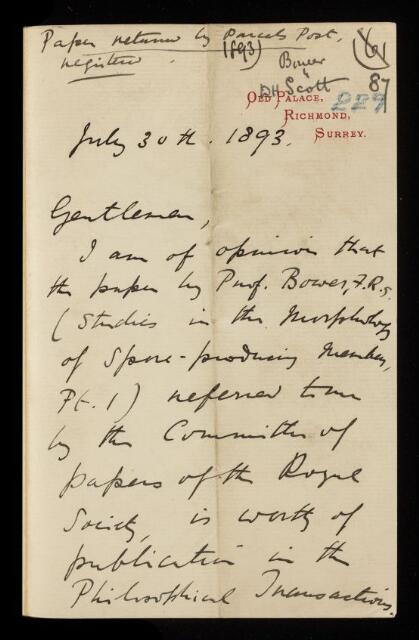 Paper returned by Parcels Post,
registered.
(1893)
Bower
D.H. Scott
61
87
229
OLD PALACE,
RICHMOND,
SURREY.
July 30th. 1893.
Gentlemen,
I am of opinion that
the paper by Prof. Bower, F.R.S.
(Studies in the Morphology
of Spore-producing Members,
Pt. 1) referred to me
by the Committee of
papers of the Royal
Society, is worthy of
publication in the
Philosophical Transactions.